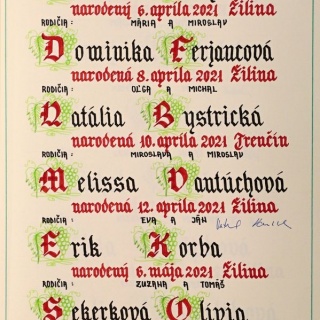 narodený 6. apríla 2021 Žilina
RODIČIA: MÁRIA A MIROSLAV
Dominika Ferjancová
narodená 8. apríla 2021 Žilina
RODIČIA: OĽGA A MICHAL
Natália Bystrická
narodená 10. apríla 2021 Trenčín
RODIČIA: MIROSLAVA A MIROSLAV
Melissa Vantúchová
narodená 12. apríla 2021 Žilina
RODIČIA: EVA A JÁN
Erik Korba
narodený 6. mája 2021 Žilina
RODIČIA: ZUZANA A TOMÁŠ
Sekerková Olívia